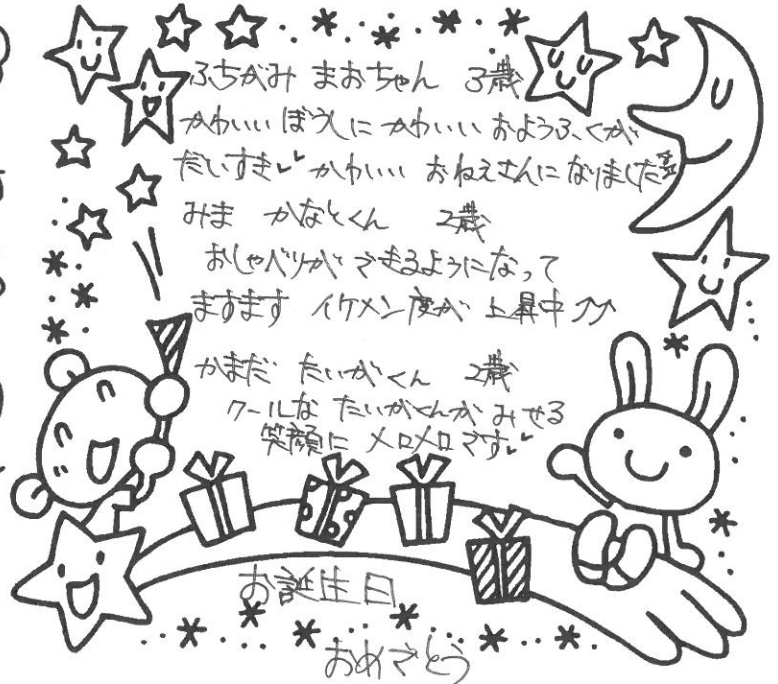 ふちがみ まおちゃん 3歳
かわいい ぼうしに かわいい おようふくが
だいすき♥ かわいい おねえさんに なりました
みま かなとくん 2歳
おしゃべりが できるようになって
ますます イケメン度が 上昇中⤴⤴
かまだ たいがくん 2歳
クールな たいがくんが みせる
笑顔に メロメロです♥
お誕生日
おめでとう